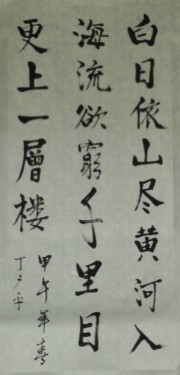 白日依山尽黄河入
海流欲窮千里目
更上一層楼
甲午年春